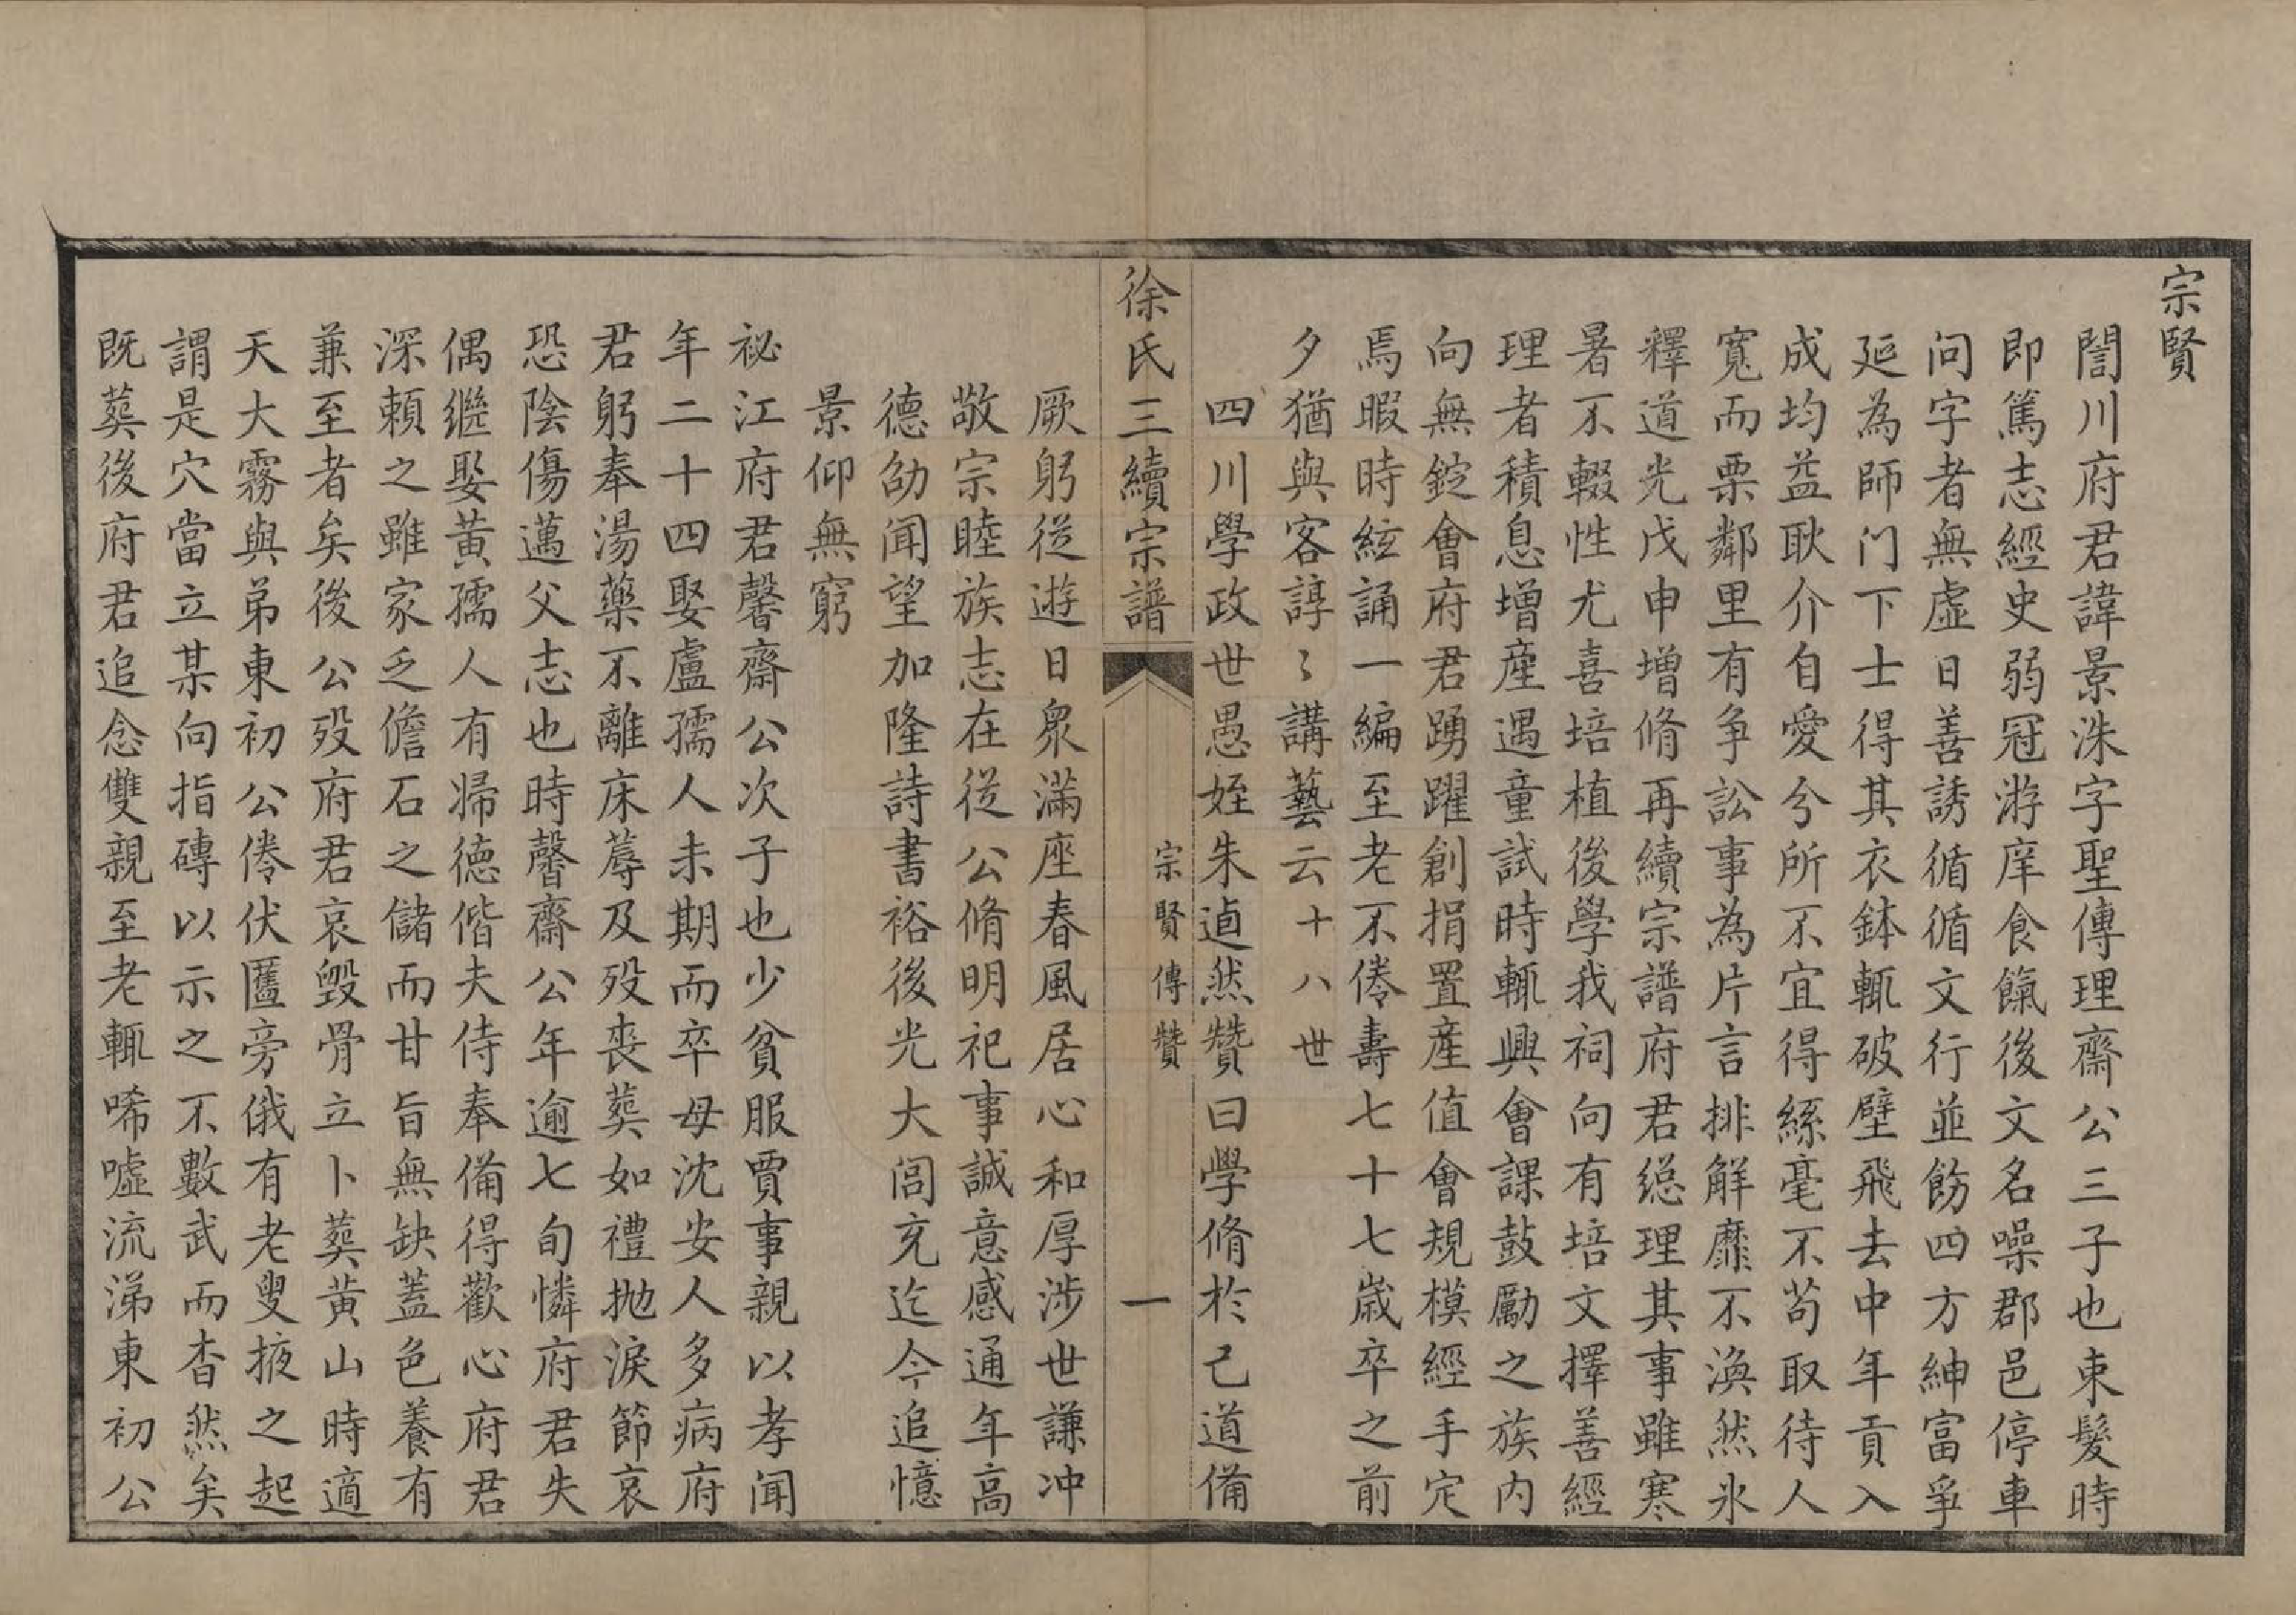 宗賢
誾川府君諱景洙字聖傳理齋公三子也束髮時
即篤志經史弱冠游庠食餼後文名噪郡邑停車
問字者無虛日善誘循循文行並飭四方紳富爭
延為師门下士得其衣鉢輒破壁飛去中年貢入
成均益耿介自愛兮所不宜得絲毫不苟取待人
寬而栗鄰里有争訟事為片言排解靡不渙然氷
釋道光戊申增脩再續宗譜府君総理其事雖寒
暑不輟性尤喜培植後學我祠向有培文擇善經
理者積息增產遇童試時輒興會課鼓勵之族内
向無錠會府君踴躍創捐置產值會規模經手定
焉暇時絃誦一編至老不倦壽七十七歲卒之前
夕猶與客諄〻講藝云十八世
四川學政世愚姪朱逌然贊曰學脩於己道備
徐氏三續宗譜
宗賢傳贊
一
厥躬從遊日衆滿座春風居心和厚涉世謙冲
敬宗睦族志在從公脩明祀事誠意感通年高
德劭聞望加隆詩書裕後光大閭充迄今追憶
景仰無窮
祕江府君馨齋公次子也少貧服賈事親以孝聞
年二十四娶盧孺人未期而卒母沈安人多病府
君躬奉湯藥不離床蓐及歿丧葬如禮抛淚節哀
恐陰傷邁父志也時馨齋公年逾七旬憐府君失
偶繼娶黄孺人有婦德偕夫侍奉備得歡心府君
深頼之雖家乏儋石之儲而甘旨無缺蓋色養有
兼至者矣後公殁府君哀毁骨立卜葬黄山時適
天大霧與弟東初公倦伏匶旁俄有老叟掖之起
謂是穴當立某向指磚以示之不數武而杳然矣
既葬後府君追念雙親至老輒唏嘘流涕東初公